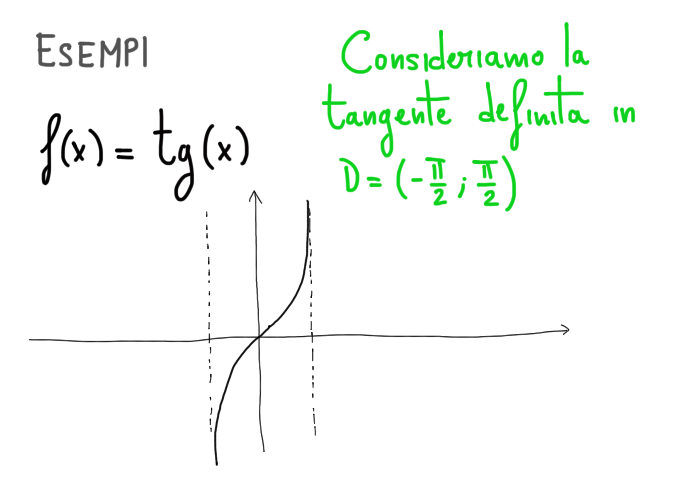 ESEMPI
f(x) = tg(x)
Consideriamo la
tangente definita in
D = (-π/2 ; π/2)